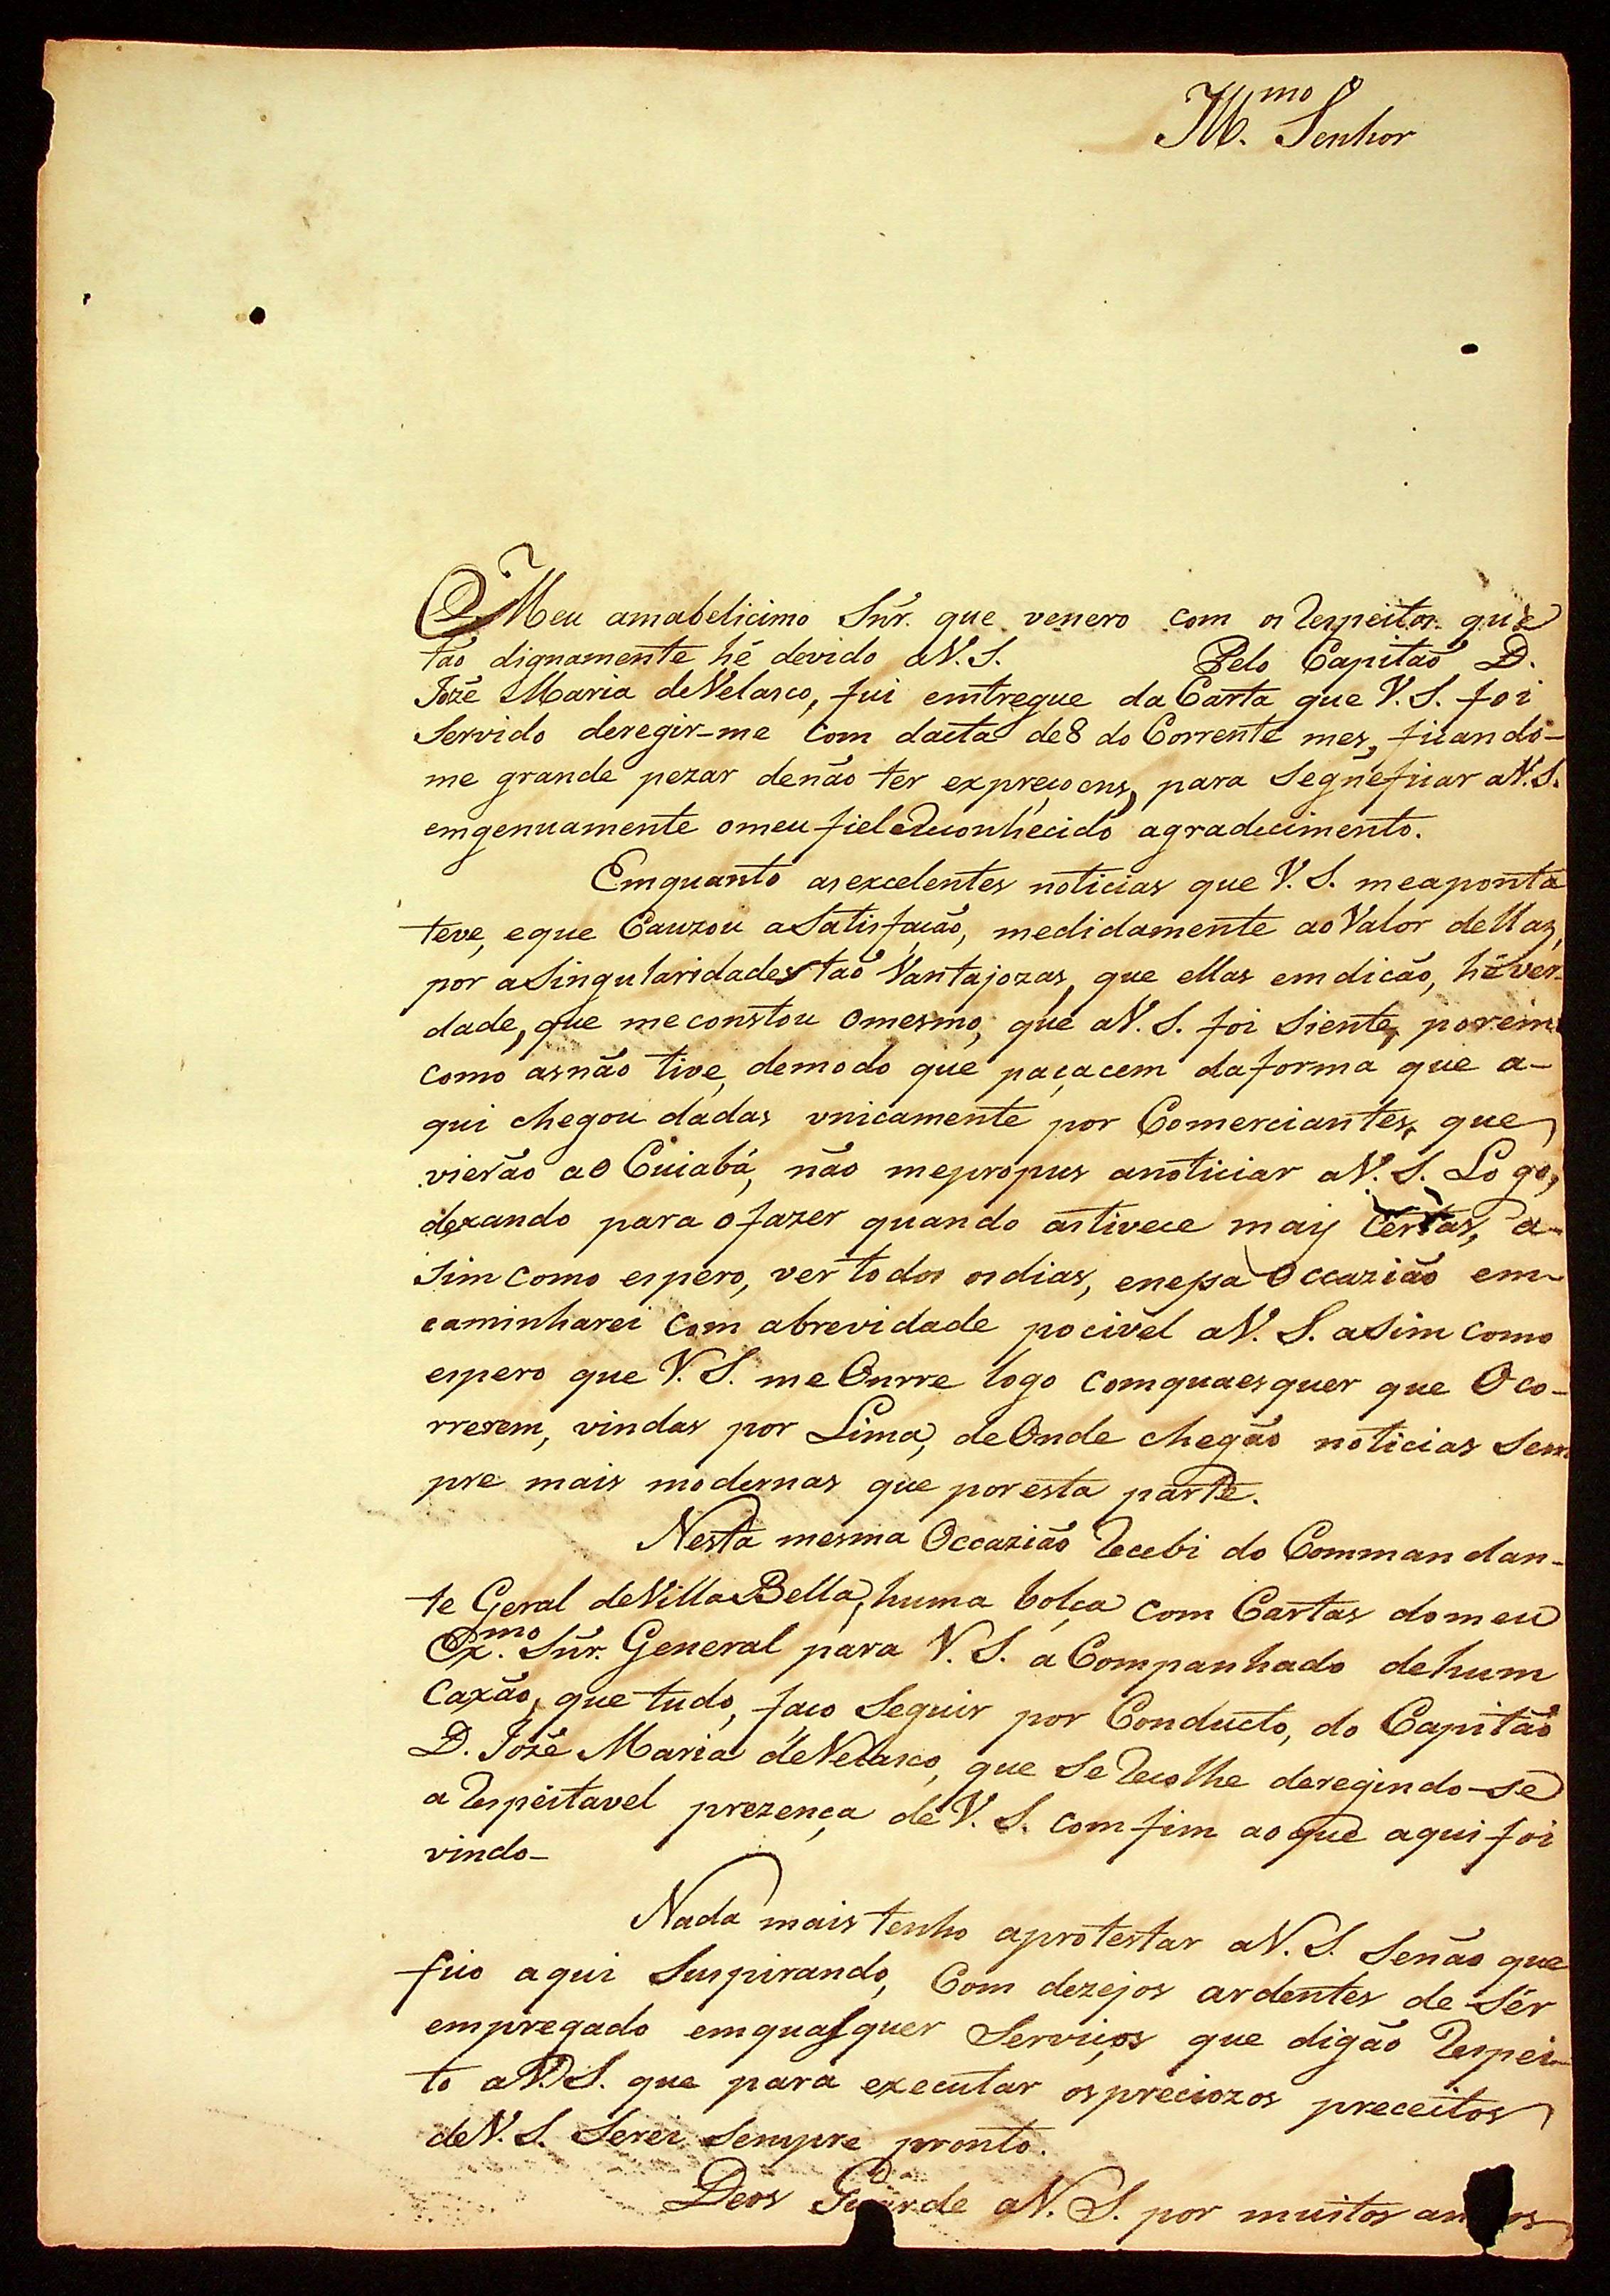 Ill.mo Senhor
Meu amabelicimo Snr. que venero com os respeitos que
tão dignamente hé devido aV. S. Pelo Capitão D.
Jozé Maria deVelasco, fui emtregue da Carta que V. S. foi
Servido deregir-me Com dacta de 8 do Corrente mes, ficando-
me grande pezar denão ter expreçoens, para Segneficar aV. S.
emgenuamente omeu fiel e reconhecido agradecimento.
Emquanto as excelentes noticias que V. S. me aponta
teve, e que Cauzou a Satisfacão, medidamente ao Valor dellas,
por a Singularidades tão Vantajozas, que ellas emdicão, hé ver-
dade, que me constou Omesmo, que aV. S. foi Siente, porem
como as não tive, demodo que paçacem da forma que a-
qui chegou dadas vnicamente por Comerciantes, que
vierão ao Cuiabá, não me propus anoticiar aV. S. Logo,
dexando para o fazer quando as tivece mais Certas, a-
Sim como espero, ver todos os dias, e nessa Occazião em-
caminharei Com abrevidade pocivel aV. S. aSim como
espero que V. S. me Onrre logo Com quaes quer que Oco-
rrerem, vindas por Lima, de Onde chegão noticias Sem
pre mais modernas que por esta parte.
Nesta mesma Occazião recebi do Comman dan-
te Geral deVilla Bella, huma bolça com Cartas do meu
Ex.mo Snr. General para V. S. a Companhado de hum
Caxão, que tudo, faco Seguir por Conducto, do Capitão
D. Jozé Maria deVelasco, que Se recolhe deregindo-se
a respeitavel prezença de V. S. com fim ao que aqui foi
vindo-
Nada mais tenho aprotestar aV. S. Senão que
fico aqui Suspirando, Com dezejos ardentes de Sér
empregado em quasquer Serviços que digão respei-
to aV. S. que para executar os preciozos preceitos
deV. S. Serei Sempre pronto.
Deos Guarde aV. S. por muitos annos